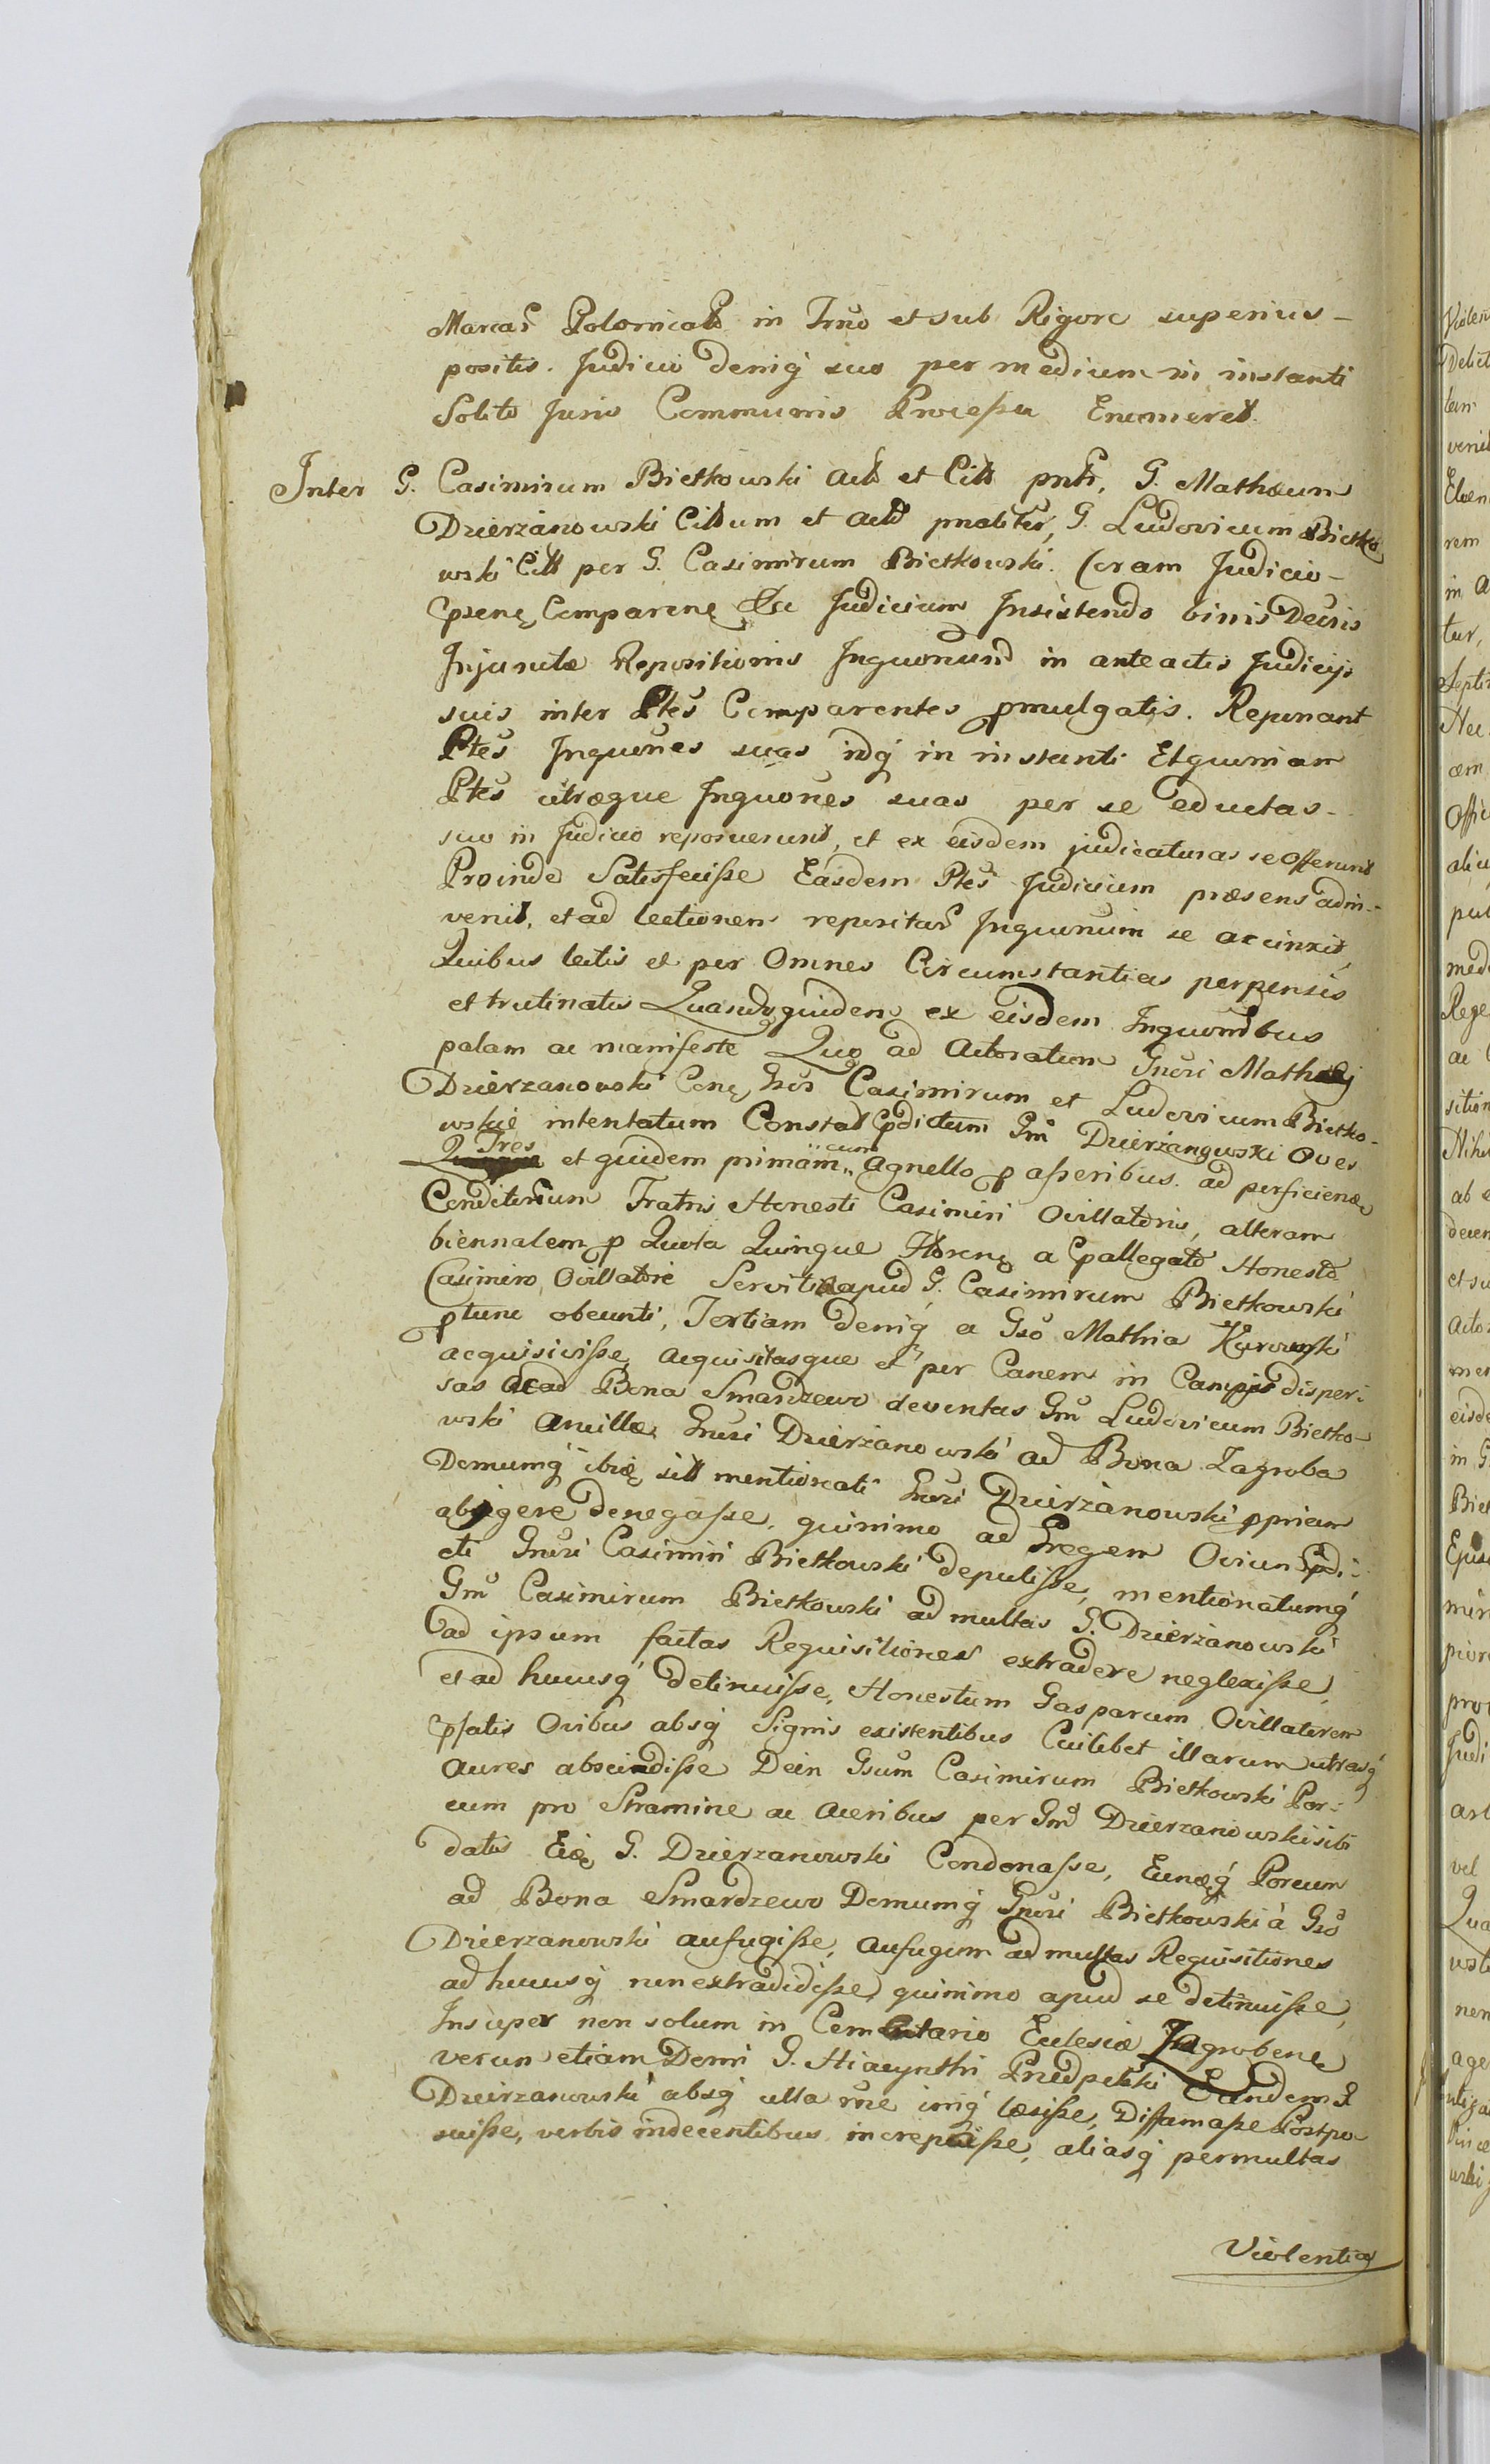 Marcar Polonicalt in Trno et sub Rigore superius-
positis. Judicio deniq suo per medium in instanti
Solito Juris Communis Processu Enumeret.
Inter G. Casimirum Bietkowski Act et Citt pntr, G. Mathæum
Dzierzanowski Cittum et Act pnaliter, G. Ludovicum Bietko
wski Citt per G. Casimirum Bietkowski. Coram Judicio-
psenę Comparenę Judicium Insistendo binis Decris
Injunctæ Repositionis Inquonum in anteactis Judicijs
suis inter Ptes Comparentes pmulgatis. Reponant
Ptes Inquones suas idq in instanti Etquoniam
Ptes utræque Inquones suas per se eductas-
suo in Judicio reposuerunt, et ex eisdem judicaturas se Offerunt
Proinde Satisfecisse Easdem Ptes Judicium præsens adin-
venit, et ad lectionem repositar Inquonum se accinxit,
Quibus lectis et per Omnes Circumstantias perpensis
et trutinatis Quandoquidem ex eisdem Inquonibus
palam ac manifeste Quo ad Actoratum Gnosi Mathæi
Dzierzanowski Conę Gsos Casimirum et Ludovicum Bietko-
wskie intentatum Constat pdictum Gm Dzierzanowski Oves
Tres et quidem primam cum Agnello p asseribus ad perficienę
Conditorium Fratris Honesti Casimiri Ovillatoris, alteram
biennalem p Quota Quinque Florenę a pallegato Honesto
Casimiro Ovillatore Servitia apud G. Casimirum Bietkowski
ptunc obeunti, Tertiam deniq a Gso Mathia Kurowski
acquisivisse, acquisitasque et per Canem in Campis disper-
sas ac ad Bona Smardzewo deventas Gm Ludovicum Bietko-
wski Ancillæ Gnosi Dzierzanowski ad Bona Zagroba
Domumq ibię sitt mentionati Gnosi Dzierzanowski ppriam
abigere denegasse, quinimo ad Gregem Ovium pdi-
cti Gnosi Casimiri Bietkowski depulisse, mentionatumq
Gm Casimirum Bietkowski ad multas G. Dzierzanowski
ad ipsum factas Requisitiones extradere neglexisse,
et ad hucusq detinuisse, Honestum Gasparum Ovillatorem
pfatis Ovibus absq Signis existentibus Cuilibet illarum utrasq
Aures abscindisse Dein Gsum Casimirum Bietkowski Por-
cum pro Stramine ac Aceribus per Gm Dzierzanowski sibi
datis Eię G. Dzierzanowski Condonasse, Eunęq Porcum
ad Bona Smardzewo Domumq Gnosi Bietkowski à Gso
Dzierzanowski aufugisse, aufugum ad multas Requisitiones
ad hucusq non extradidisse, quinimo apud se detinuisse,
Insuper non solum in Cemetario Eclesiæ Zagrobenę
verum etiam Domi G. Hiacynthi Eundem G
Dzierzanowski absq ulla rne imq læsisse, Diffamasse Postpo
suisse, verbis indecentibus increpasse, aliasq permultas
Violentias